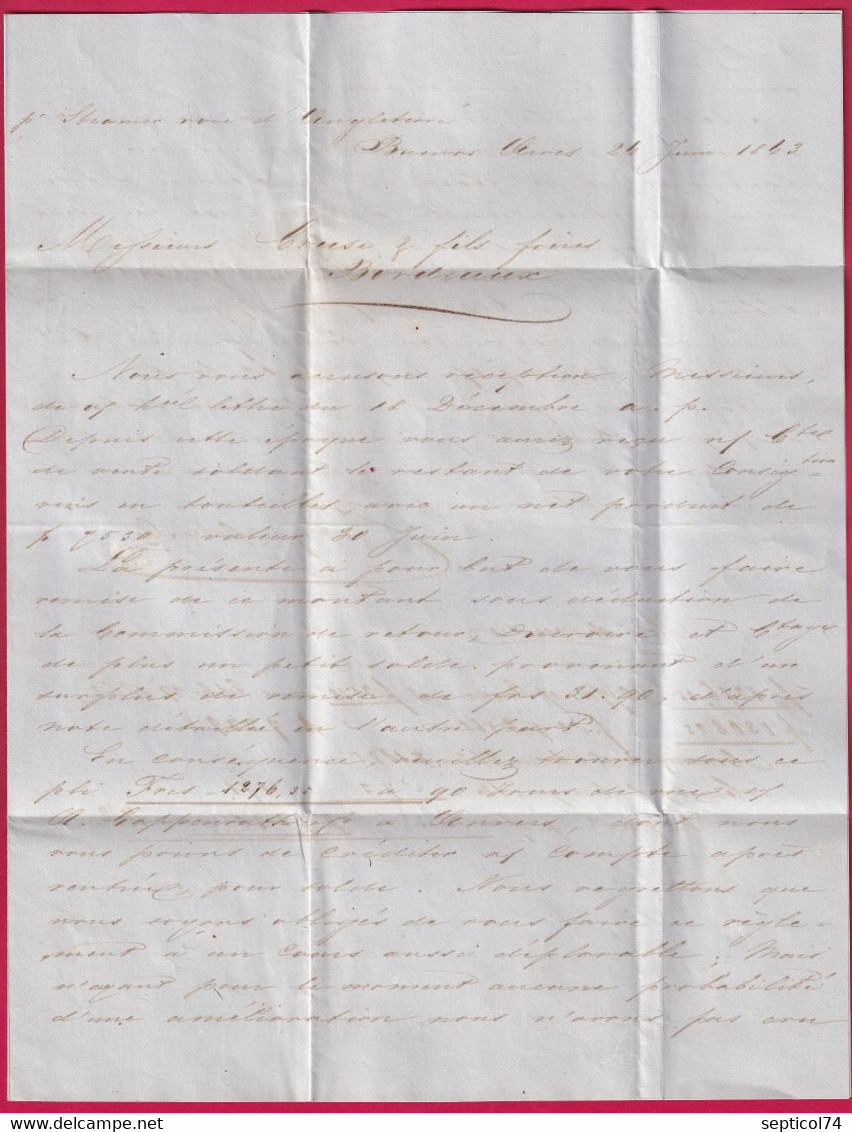 pr Steamer voie d'Angleterre
Buenos Aires 24 Juin 1863
Messieurs Cruse & fils frères
Bordeaux
Nous vous accusons réception, Messieurs,
de v/ hble lettre du 18 Décembre a. p.
Depuis cette époque vous aurez reçu n/
de vente soldant le restant de votre Consigtion
vins en bouteilles, avec un net produit de
p 7530 valeur 30 Juin.
La présente a pour but de vous faire
remise de ce montant sous déduction de
la Commission de retour, Ducroire et Ctage
de plus un petit solde provenant d'un
surplus de remise de frs 31.90, d'après
note détaillée en l'autre part.
En conséquence veuillez trouver sous ce
pli Frcs 1276,35 à 90 jours de vue s/
à Anvers, dont nous
vous prions de créditer n/ compte après
rentrée, pour solde. Nous regrettons que
nous soyons obligés de vous faire ce règle-
ment à un cours aussi déplorable; Mais
n'ayant pour le moment aucune probabilité
d'une amélioration nous n'avons pas cru
septicol74